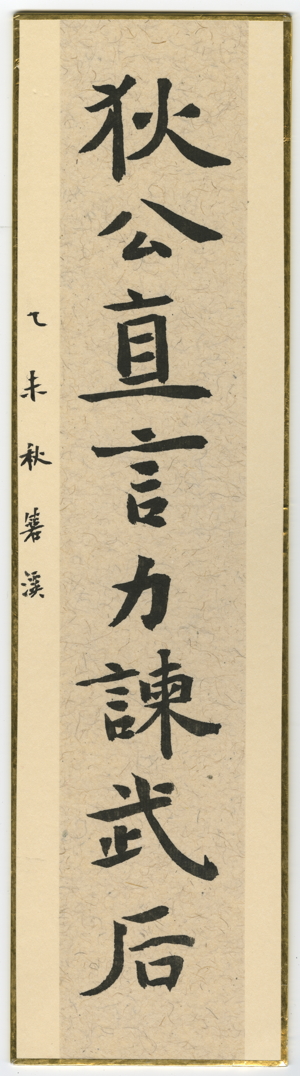 狄公直言力諫武后
乙未秋箬溪